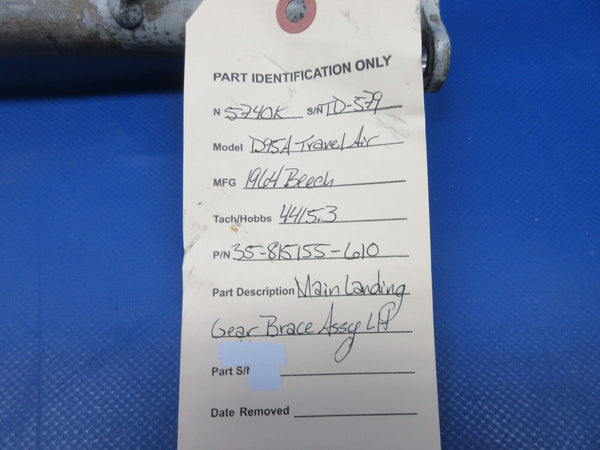 PART IDENTIFICATION ONLY
N 5740K S/N TD-579
Model D95A Travel Air
MFG 1964 Beech
Tach/Hobbs 4415.3
P/N 35-815155-610
Part Description Main Landing
Gear Brace Assy LH
Part S/N
Date Removed